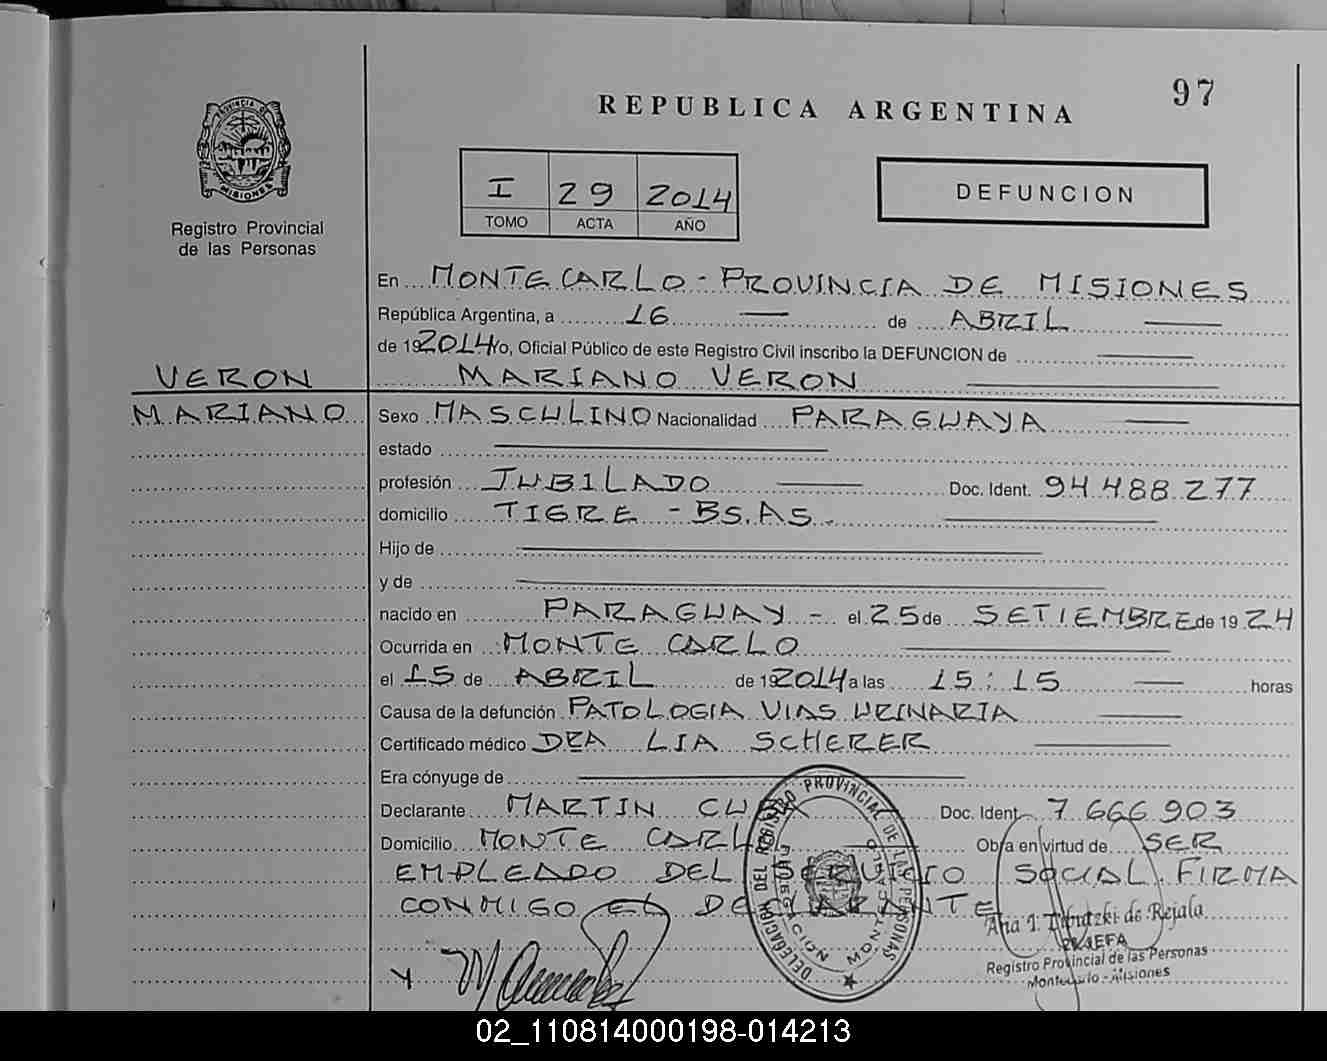 97
REPUBLICA ARGENTINA
PROVINCIA DE MISIONES
Registro Provincial
de las Personas
I 29 2014
TOMO ACTA AÑO
DEFUNCION
En MONTECARLO - PROVINCIA DE MISIONES
República Argentina, a 16 de ABRIL
de 192014 Yo, Oficial Público de este Registro Civil inscribo la DEFUNCION de
VERON
MARIANO VERON
MARIANO
Sexo MASCULINO Nacionalidad PARAGUAYA
estado
profesión JUBILADO Doc. Ident. 94.488.277
domicilio TIGRE - BS.AS.
Hijo de
y de
nacido en PARAGUAY - el 25 de SETIEMBRE de 19 24
Ocurrida en MONTE CARLO
el 15 de ABRIL de 192014 a las 15:15 horas
Causa de la defunción PATOLOGIA VIAS URINARIA
Certificado médico DRA LIA SCHERER
Era cónyuge de
Declarante MARTIN Doc. Ident. 7 666 903
Domicilio MONTE CARLO Obra en virtud de SER
EMPLEADO DEL SERVICIO SOCIAL FIRMA
CONMIGO EL DECLARANTE
DELEGACION DEL REGISTRO PROVINCIAL DE LAS PERSONAS
DELEGACION MONTECARLO
Ana I. de Rejala
JEFA
Registro Provincial de las Personas
Montecarlo - Misiones
02_110814000198-014213